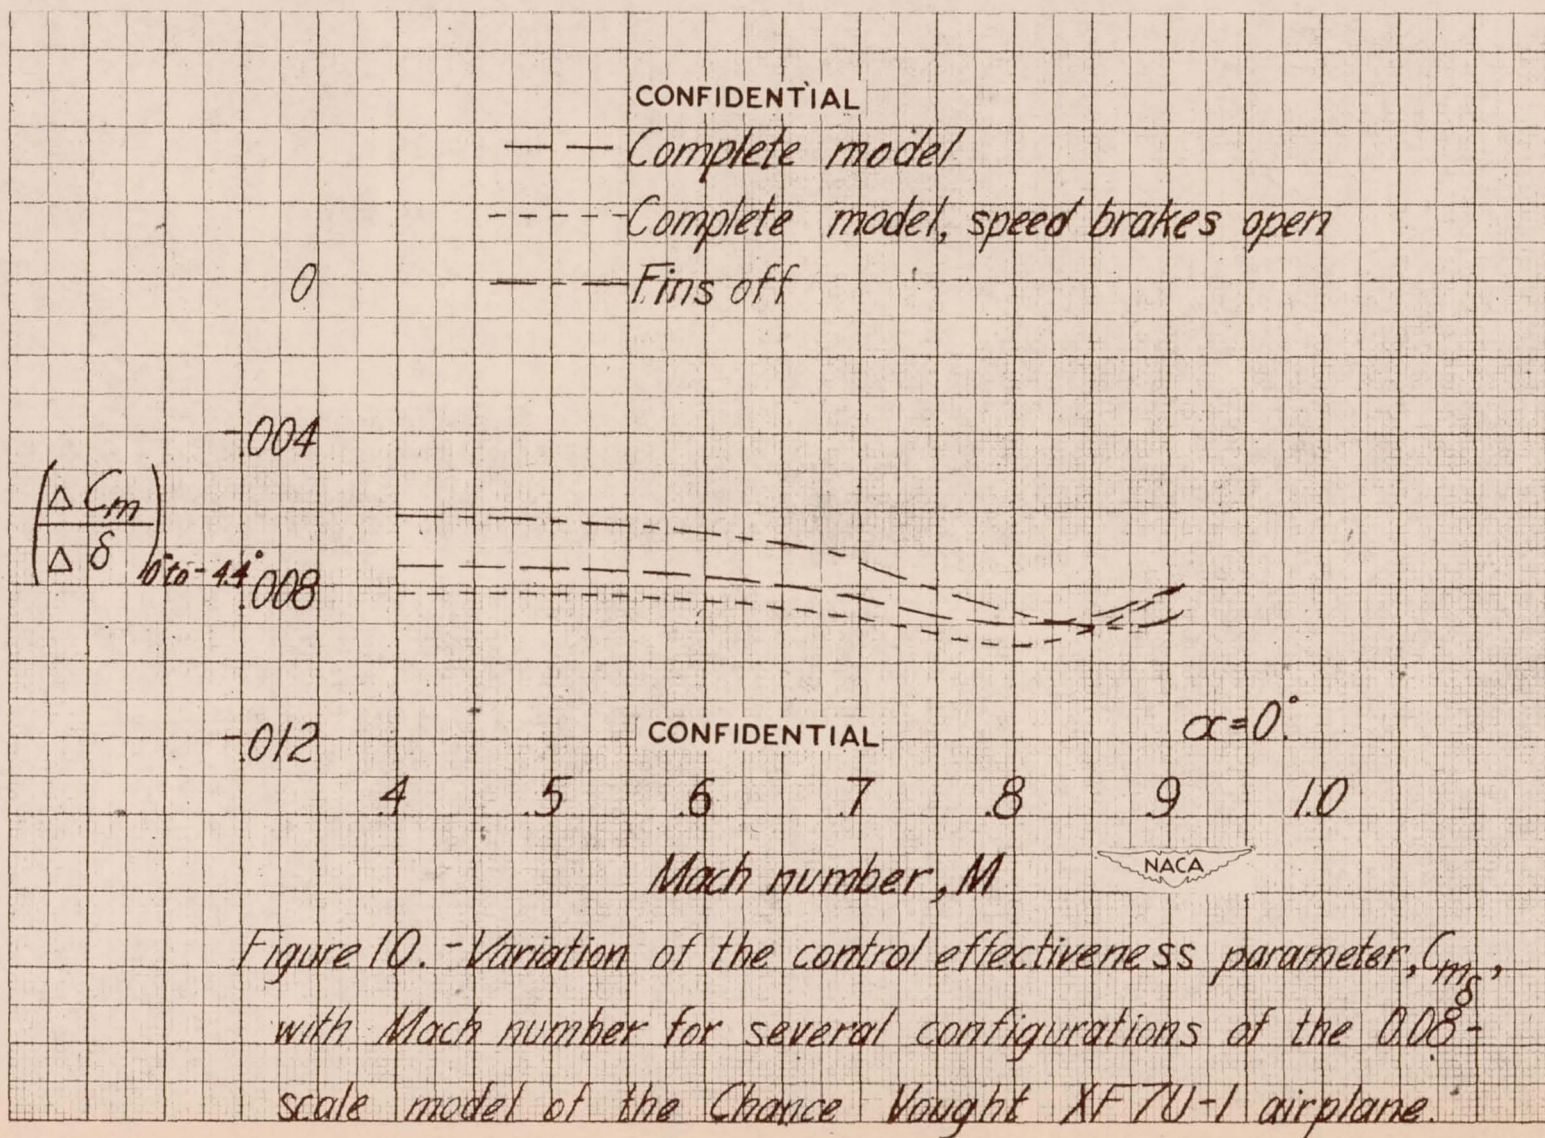 CONFIDENTIAL
Complete model
Complete model, speed brakes open
Fins off
0
-.004
(ΔCm/Δδ)0° to -4.4°
-.008
-.012
CONFIDENTIAL
α=0°.
.4 .5 .6 .7 .8 .9 1.0
Mach number, M
NACA
Figure 10.-Variation of the control effectiveness parameter, Cmδ,
with Mach number for several configurations of the 0.08-
scale model of the Chance Vought XF7U-1 airplane.